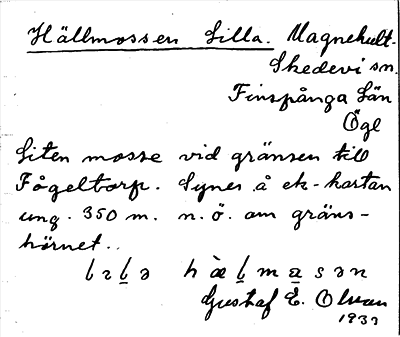 Hällmossen Lilla. Magnehult.
Skedevi sn.
Finspånga Län
Ögl
Liten mosse vid gränsen till
Fågeltorp. Synes å ek-kartan
ung. 350 m. n.ö. om gräns-
hörnet..
Gustaf E. Olsson